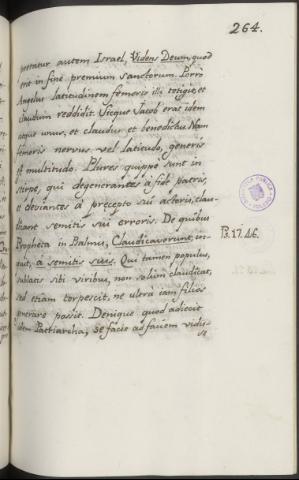 264.
pretatur autem Israel, Videns Deum, quod
erit in fine premium Sanctorum. Porro
Angelus latitudinem femoris illi tetigit, et
claudum reddidit. Sicque Jacob eras idem
atque unus, et claudus et benedictus. Nam
femoris nervus vel latitudo, generis
est multitudo. Plures quippe sunt in
stirpe, qui degenerantes à fide patris,
et deviantes à precepto sui actoris, clau-
dicant semitis sui erroris. De quibus
Propheta in Psalmis, Claudicaverunt, in-
quit, a semitis suis. Qui tamen populus,
sublatis sibi viribus, non solum claudicat,
sed etiam torpescit, ne ultra iam filios
generare possit. Denique quod adiecit
idem Patriarcha, se facie ad faciem vidis-
se
Ps. 17. 46.